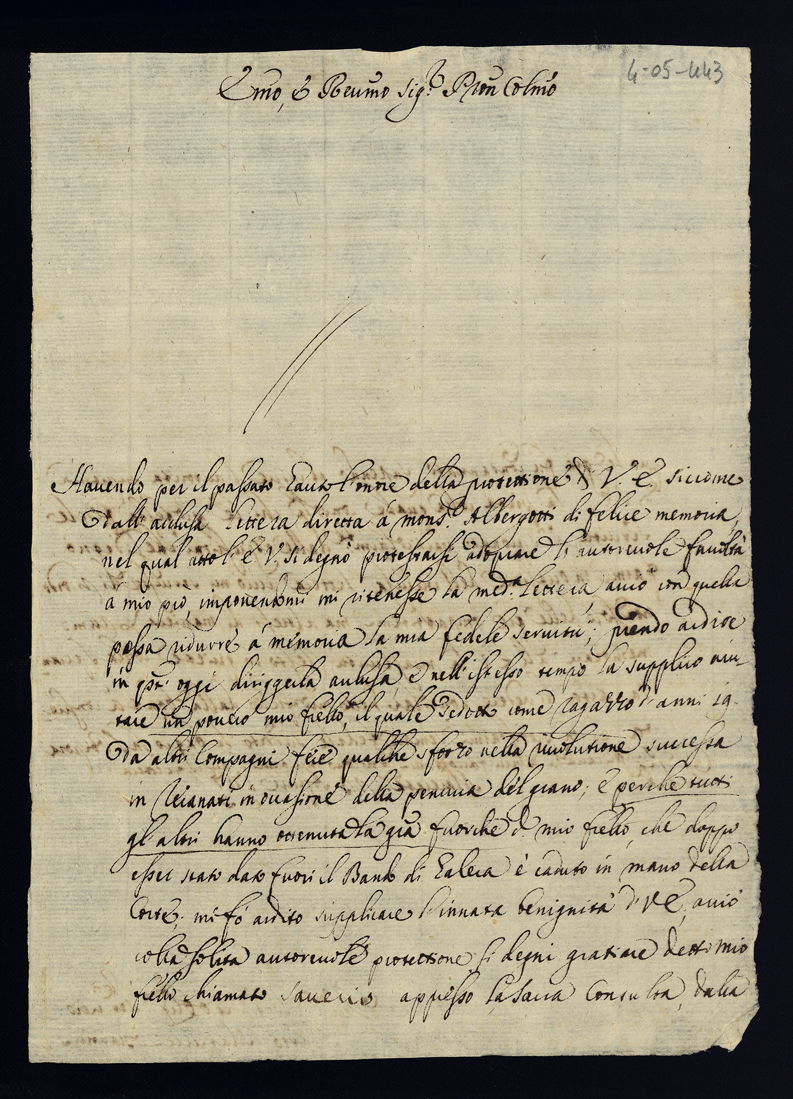 Emo, e Reumo Sig.r Pron Colmo
4-05-443
Hauendo per il passato hauto l'onore della protettione di V. E. siccome
dall'acclusa lettera diretta à mons.r Albergotti di felice memoria,
nel qual atto l'E. V. si degnò protestarsi adoprare la autoreuole
à mio prò, imponendomi mi ritenesse la med.a lettera acciò con quella
possa ridurre à memoria la mia fedele seruitù; prendo ardire
in q.sto oggi diriggerla acclusa, e nell'istesso tempo la supplico aiu-
tare un pouero mio fiello, il quale sedotto come ragazzo d'anni 19
da altri Compagni fece qualche sforzo nella riuolutione successa
in Recanati in occasione della penuria del grano; e perche tutti
gl'altri hanno ottenuta la gra fuorche d.o mio fiello, che doppo
esser stato dato fuori il Bando di Galera è caduto in mano della
Corte; mi fò ardito supplicare l'innata benignità d'V E, acciò
colla solita autoreuole protettione si degni gratiare detto mio
fiello chiamato Sauerio appresso la Sacra Consulta, dalla